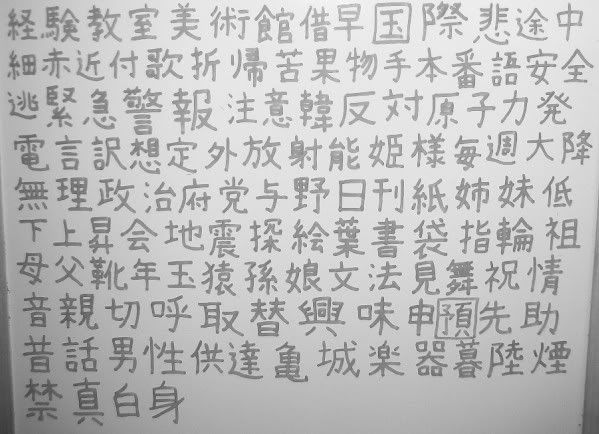 経験教室美術館借早国際悲途中
細赤近付歌折帰苦果物手本番語安全
逃緊急警報注意韓反対原子力発
電言訳想定外放射能姫様毎週大降
無理政治府党与野日刊紙姉妹低
下上昇会地震探絵葉書袋指輪祖
母父靴年玉猿孫娘文法見舞祝情
音親切呼取替興味申預先助
昔話男性供達亀城楽器暮陸煙
禁真白身